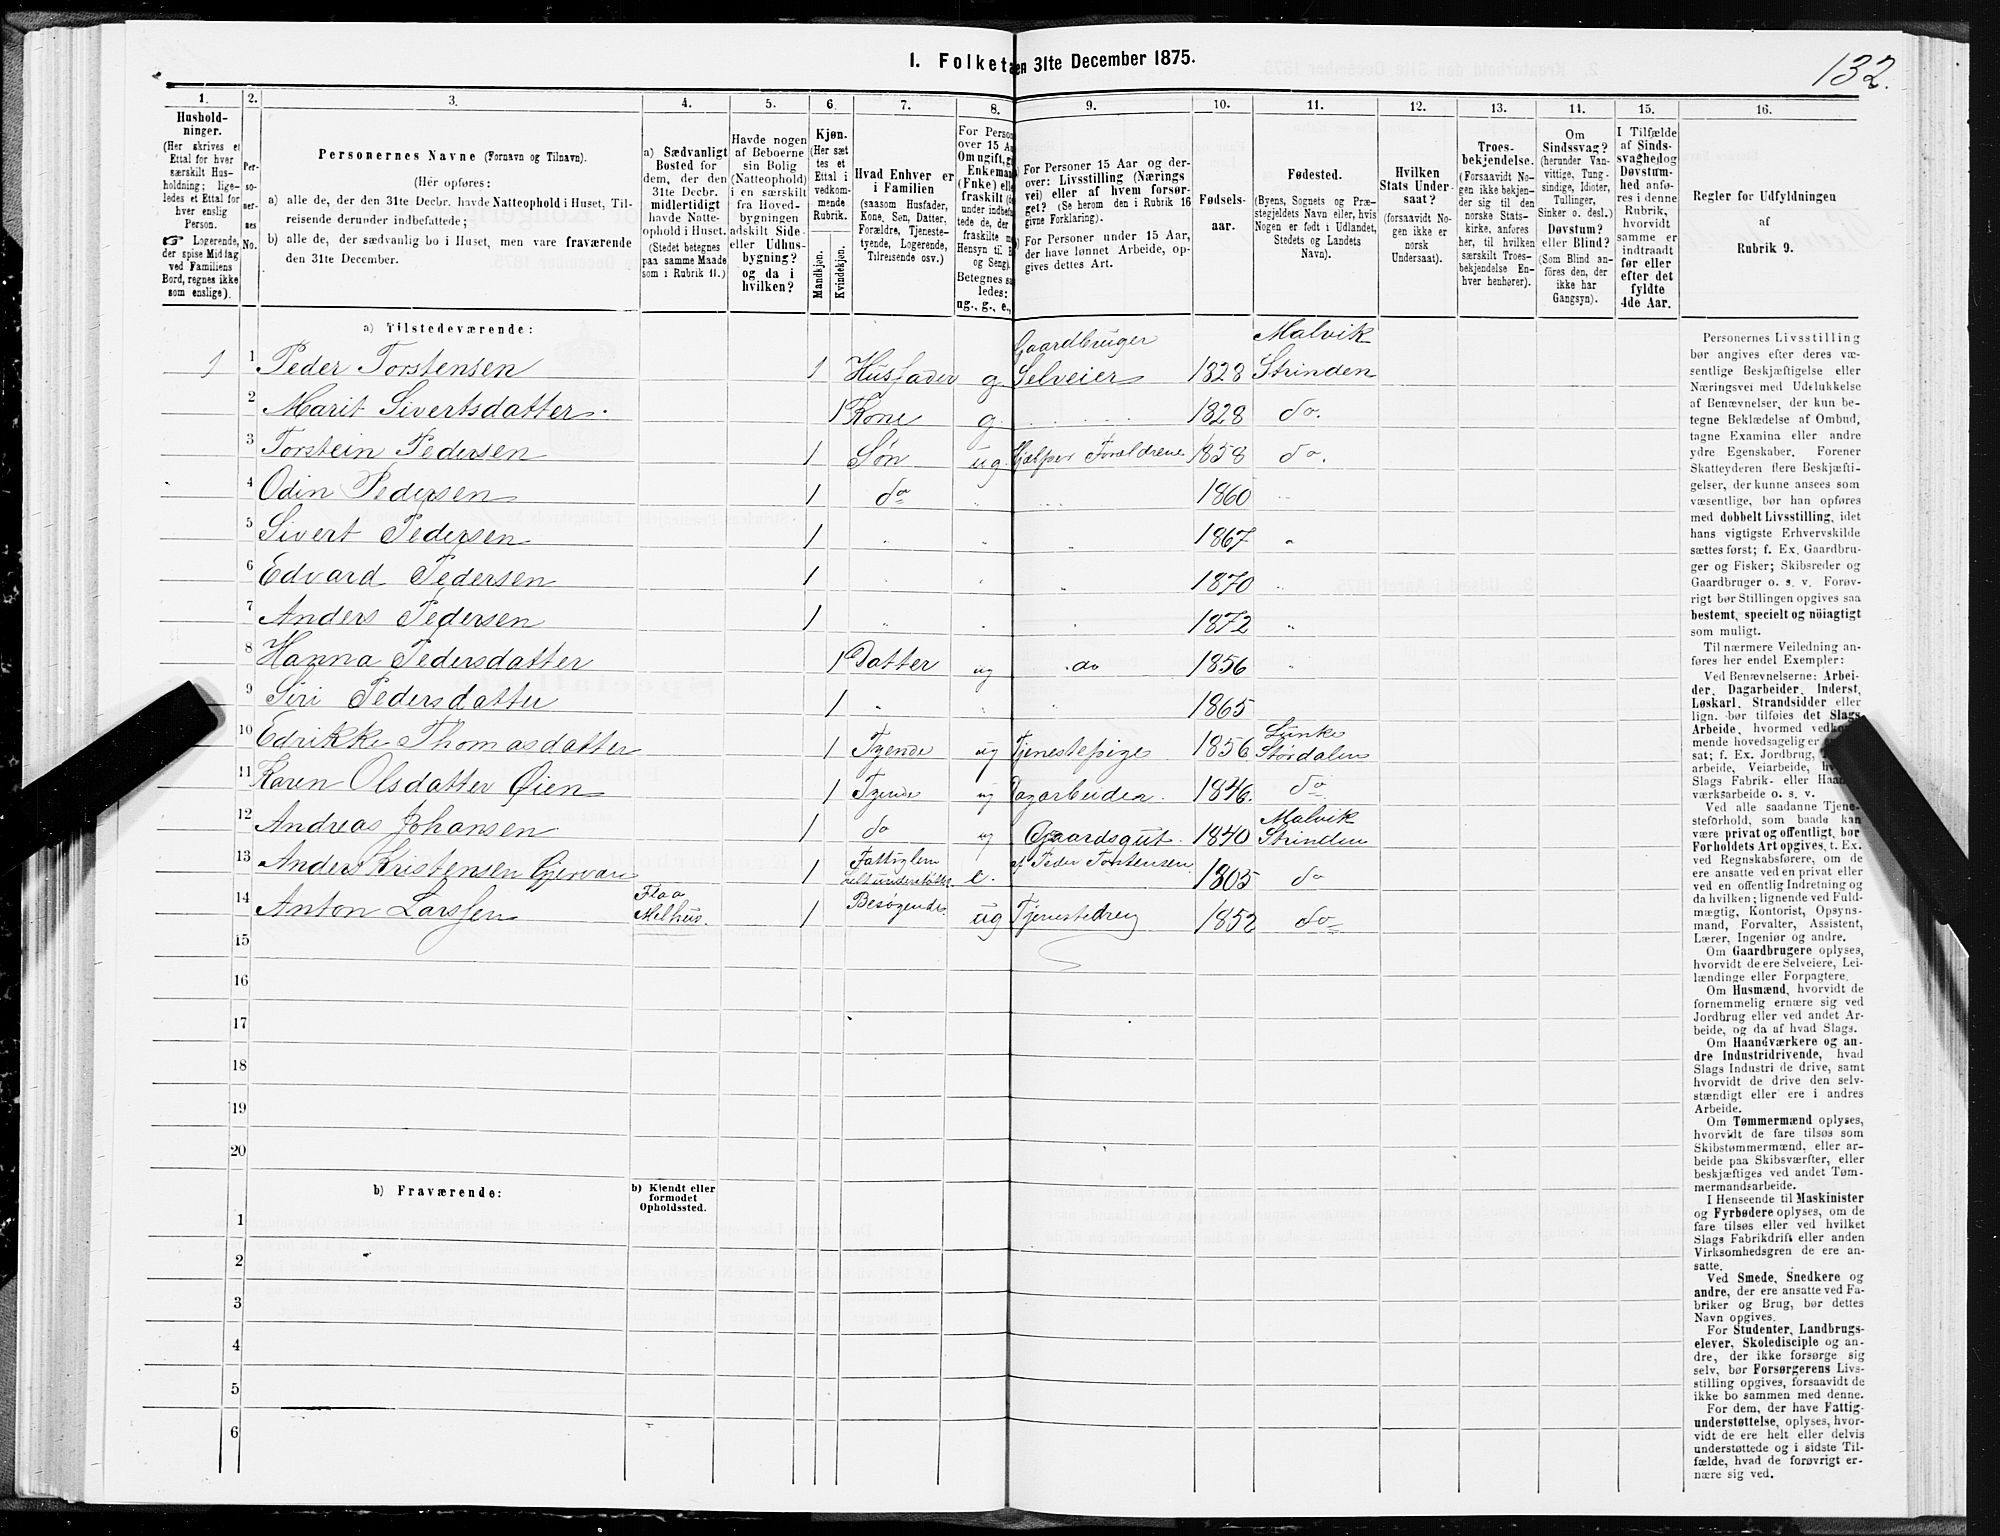 I. Folket en 31te December 1875.
132.
1. 2. 3. 4. 5. 6. 7. 8. 9. 10. 11. 12. 13. 14. 15. 16.
Hushold-
ninger.
(Her skrives et
Ettal for hver
særskilt Hus-
holdning; lige-
ledes et Ettal for
hver enslig
Person.
☞ Logerende,
der spise Middag
ved Familiens
Bord, regnes ikke
som enslige).
Per-
so-
ner-
nes
No.
Personernes Navne (Fornavn og Tilnavn).
(Her opføres:
a) alle de, der den 31te Decbr. havde Natteophold i Huset, Til-
reisende derunder indbefattede;
b) alle de, der sædvanlig bo i Huset, men vare fraværende
den 31te December.
a) Sædvanligt
Bosted for
dem, der den
31te Decbr.
midlertidigt
havde Natte-
ophold i Huset.
(Stedet betegnes
paa samme Maade
som i Rubrik 11.)
Havde nogen
af Beboerne
sin Bolig
(Natteophold)
i en særskilt
fra Hoved-
bygningen
adskilt Side-
eller Udhus-
bygning?
og da i
hvilken?
Kjøn.
(Her sæt
tes et
Ettal i
vedkom-
mende
Rubrik.
Mandkjøn.
Kvindekjøn.
Hvad Enhver er
i Familien
(saasom Husfader,
Kone, Søn, Datter,
Forældre, Tjeneste-
tyende, Logerende,
Tilreisende osv.)
For Person
over 15 A
Om ugift, g
Enkeman
(Fnke) ell
fraskilt (
under indbef
tede de, der
fraskilte m
Hensyn til. B
og Seng).
Betegnes sa
ledes:
ug., g., e.,
For Personer 15 Aar og der-
over: Livsstilling (Nærings
vei) eller af hvem forsør-
get? (Se herom den i Rubrik 16
givne Forklaring).
For Personer under 15 Aar,
der have lønnet Arbeide, op-
gives dettes Art.
Fødsels-
aar.
Fødested.
(Byens, Sognets og Præ-
stegjeldets Navn eller, hvis
Nogen er født i Udlandet,
Stedets og Landets
Navn).
Hvilken
Stats Under-
saat?
(forsaavidt No-
gen ikke er
norsk
Undersaat).
Troes-
bekjendelse.
(Forsaavidt No-
gen ikke bekjen-
der sig til den
norske Stats-
kirke, anføres
her, til hvilken
særskilt Troes-
bekjendelse En-
hver henhører).
Om
Sindssvag?
(herunder Van-
vittige, Tung-
sindige, Idioter,
Tullinger,
Sinker o. desl.)
Døvstum?
eller Blind?
(Som Blind an-
føres den, der
ikke har
Gangsyn).
I Tilfælde
af Sinds-
svaghedog
Døvstum-
hed anfø-
res i denne
Rubrik,
hvorvidt
samme er
indtraadt
før eller
efter det
fyldte
4de Aar.
Regler for Udfyldningen
af
Rubrik 9.
a) Tilstedeværende:
Gaardbruger Malvik
1 1 Peder Torstensen 1 Husfader g Selveier 1828 Strinden
2 Marit Sivertsdatter. 1 Kone g. 1828 do.
3 Torstein Pedersen 1 Søn ug. Hjælper Forældrene 1858 do.
4 Odin Pedersen 1 do " " 1860 "
5 Sivert Pedersen 1 " " " 1867 "
6 Edvard Pedersen 1 " " " 1870 "
7 Anders Pedersen 1 " " " 1872 "
8 Hanna Pedersdatter 1 Datter ug do 1856 "
9 Siri Pedersdatter 1 " " " 1865
10 Edrikke Thomasdatter 1 Tyende ug Tjenestepige 1856 Størdalen
11 Karen Olsdatter Øien 1 Tyende ug Dagarbeider. 1846. do
Malvik
12 Andreas Johansen 1 do ug Gaardsgut. 1840 Strinden
13 Anders Kristensen 1 Fattiglem e. af Peder Torstensen 1805 do
helt understøttet.
Flaa Besøgende.
14 Anton Larssen Melhus. 1 ug Tjenestedreng 1852 do
15
16
17
18
19
20
b) Fraværende:
b) Kjendt eller
formodet
Opholdssted.
1
2
3
4
5
6
Personernes Livsstilling
bør angives efter deres væ-
sentlige Beskjæftigelse eller
Næringsvei med Udelukkelse
af Benævnelser, der kun be-
tegne Beklædelse af Ombud,
tagne Examina eller andre
ydre Egenskaber. Forener
Skatteyderen flere Beskjæfti-
gelser, der kunne ansees som
væsentlige, bør han opføres
med dobbelt Livsstilling, idet
hans vigtigste Erhvervskilde
sættes først; f. Ex. Gaardbru-
ger og Fisker; Skibsreder og
Gaardbruger o. s. v. Forøv-
rigt bør Stillingen opgives saa
bestemt, specielt og nöiagtigt
som muligt.
Til nærmere Veiledning an-
føres her endel Exempler:
Ved Benævnelserne: Arbei-
der, Dagarbeider, Inderst,
Løskarl, Strandsidder eller
lign. bør tilføies det Slags
Arbeide, hvormed vedkom-
mende hovedsagelig er
sat; f. Ex. Jordbrug,
arbeide, Veiarbeide,
Slags Fabrik- eller Haand-
værksarbeide o. s. v.
Ved alle saadanne Tjene-
steforhold, som baade kan
være privat og offentligt, bør
Forholdets Art opgives, t. Ex.
ved Regnskabsførere, om de
ere ansatte ved en privat eller
ved en offentlig Indretning og
da hvilken; lignende ved Fuld-
mægtig, Kontorist, Opsyns-
mand, Forvalter, Assistent,
Lærer, Ingeniør og andre.
Om Gaardbrugere oplyses,
hvorvidt de ere Selveiere, Lei-
lændinge eller Forpagtere.
Om Husmænd, hvorvidt de
fornemmelig ernære sig ved
Jordbrug eller ved andet Ar-
beide, og da af hvad Slags.
Om Haandværkere og an-
dre Industridrivende, hvad
Slags Industri de drive, samt
hvorvidt de drive den selv-
stændigt eller ere i andres
Arbeide.
Om Tømmermænd oplyses,
hvorvidt de fare tilsøs som
Skibstømmermænd, eller ar-
beide paa Skibsværfter, eller
beskjæftiges ved andet Tøm-
mermandsarbeide.
I Henseende til Maskinister
og Fyrbødere oplyses, om de
fare tilsøs eller ved hvilket
Slags Fabrikdrift eller anden
Virksomhedsgren de ere an-
satte.
Ved Smede, Snedkere og
andre, der ere ansatte ved Fa-
briker og Brug, bør dettes
Navn opgives.
For Studenter, Landbrugs-
elever, Skoledisciple og an-
dre, der ikke forsørge sig
selv, bør Forsørgerens Livs-
stilling opgives, forsaavidt de
ikke bo sammen med denne.
For dem, der have Fattig-
understøttelse, oplyses, hvor-
vidt de ere helt eller delvis
understøttede og i sidste Til-
fælde, hvad de forøvrigt er-
nære sig ved.